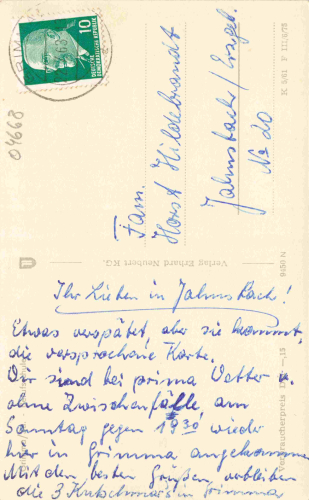 GRIMMA
10
DEUTSCHE
DEMOKRATISCHE REPUBLIK
04668
Fam.
Horst Hildebrandt
Jahnsbach / Erzgeb.
No 20
K 5/61 F III/6/75
Verlag Erhard Neubert KG.
9456 N
Verbraucherpreis
Ihr Lieben in Jahnsbach!
Etwas verspätet, aber sie kommt,
die versprochene Karte.
Wir sind bei prima Wetter u.
ohne Zwischenfälle, am
Sonntag gegen 19 30 wieder
hier in Grimma angekommen.
Mit den besten Grüßen, verbleiben
die 3 in Grimma